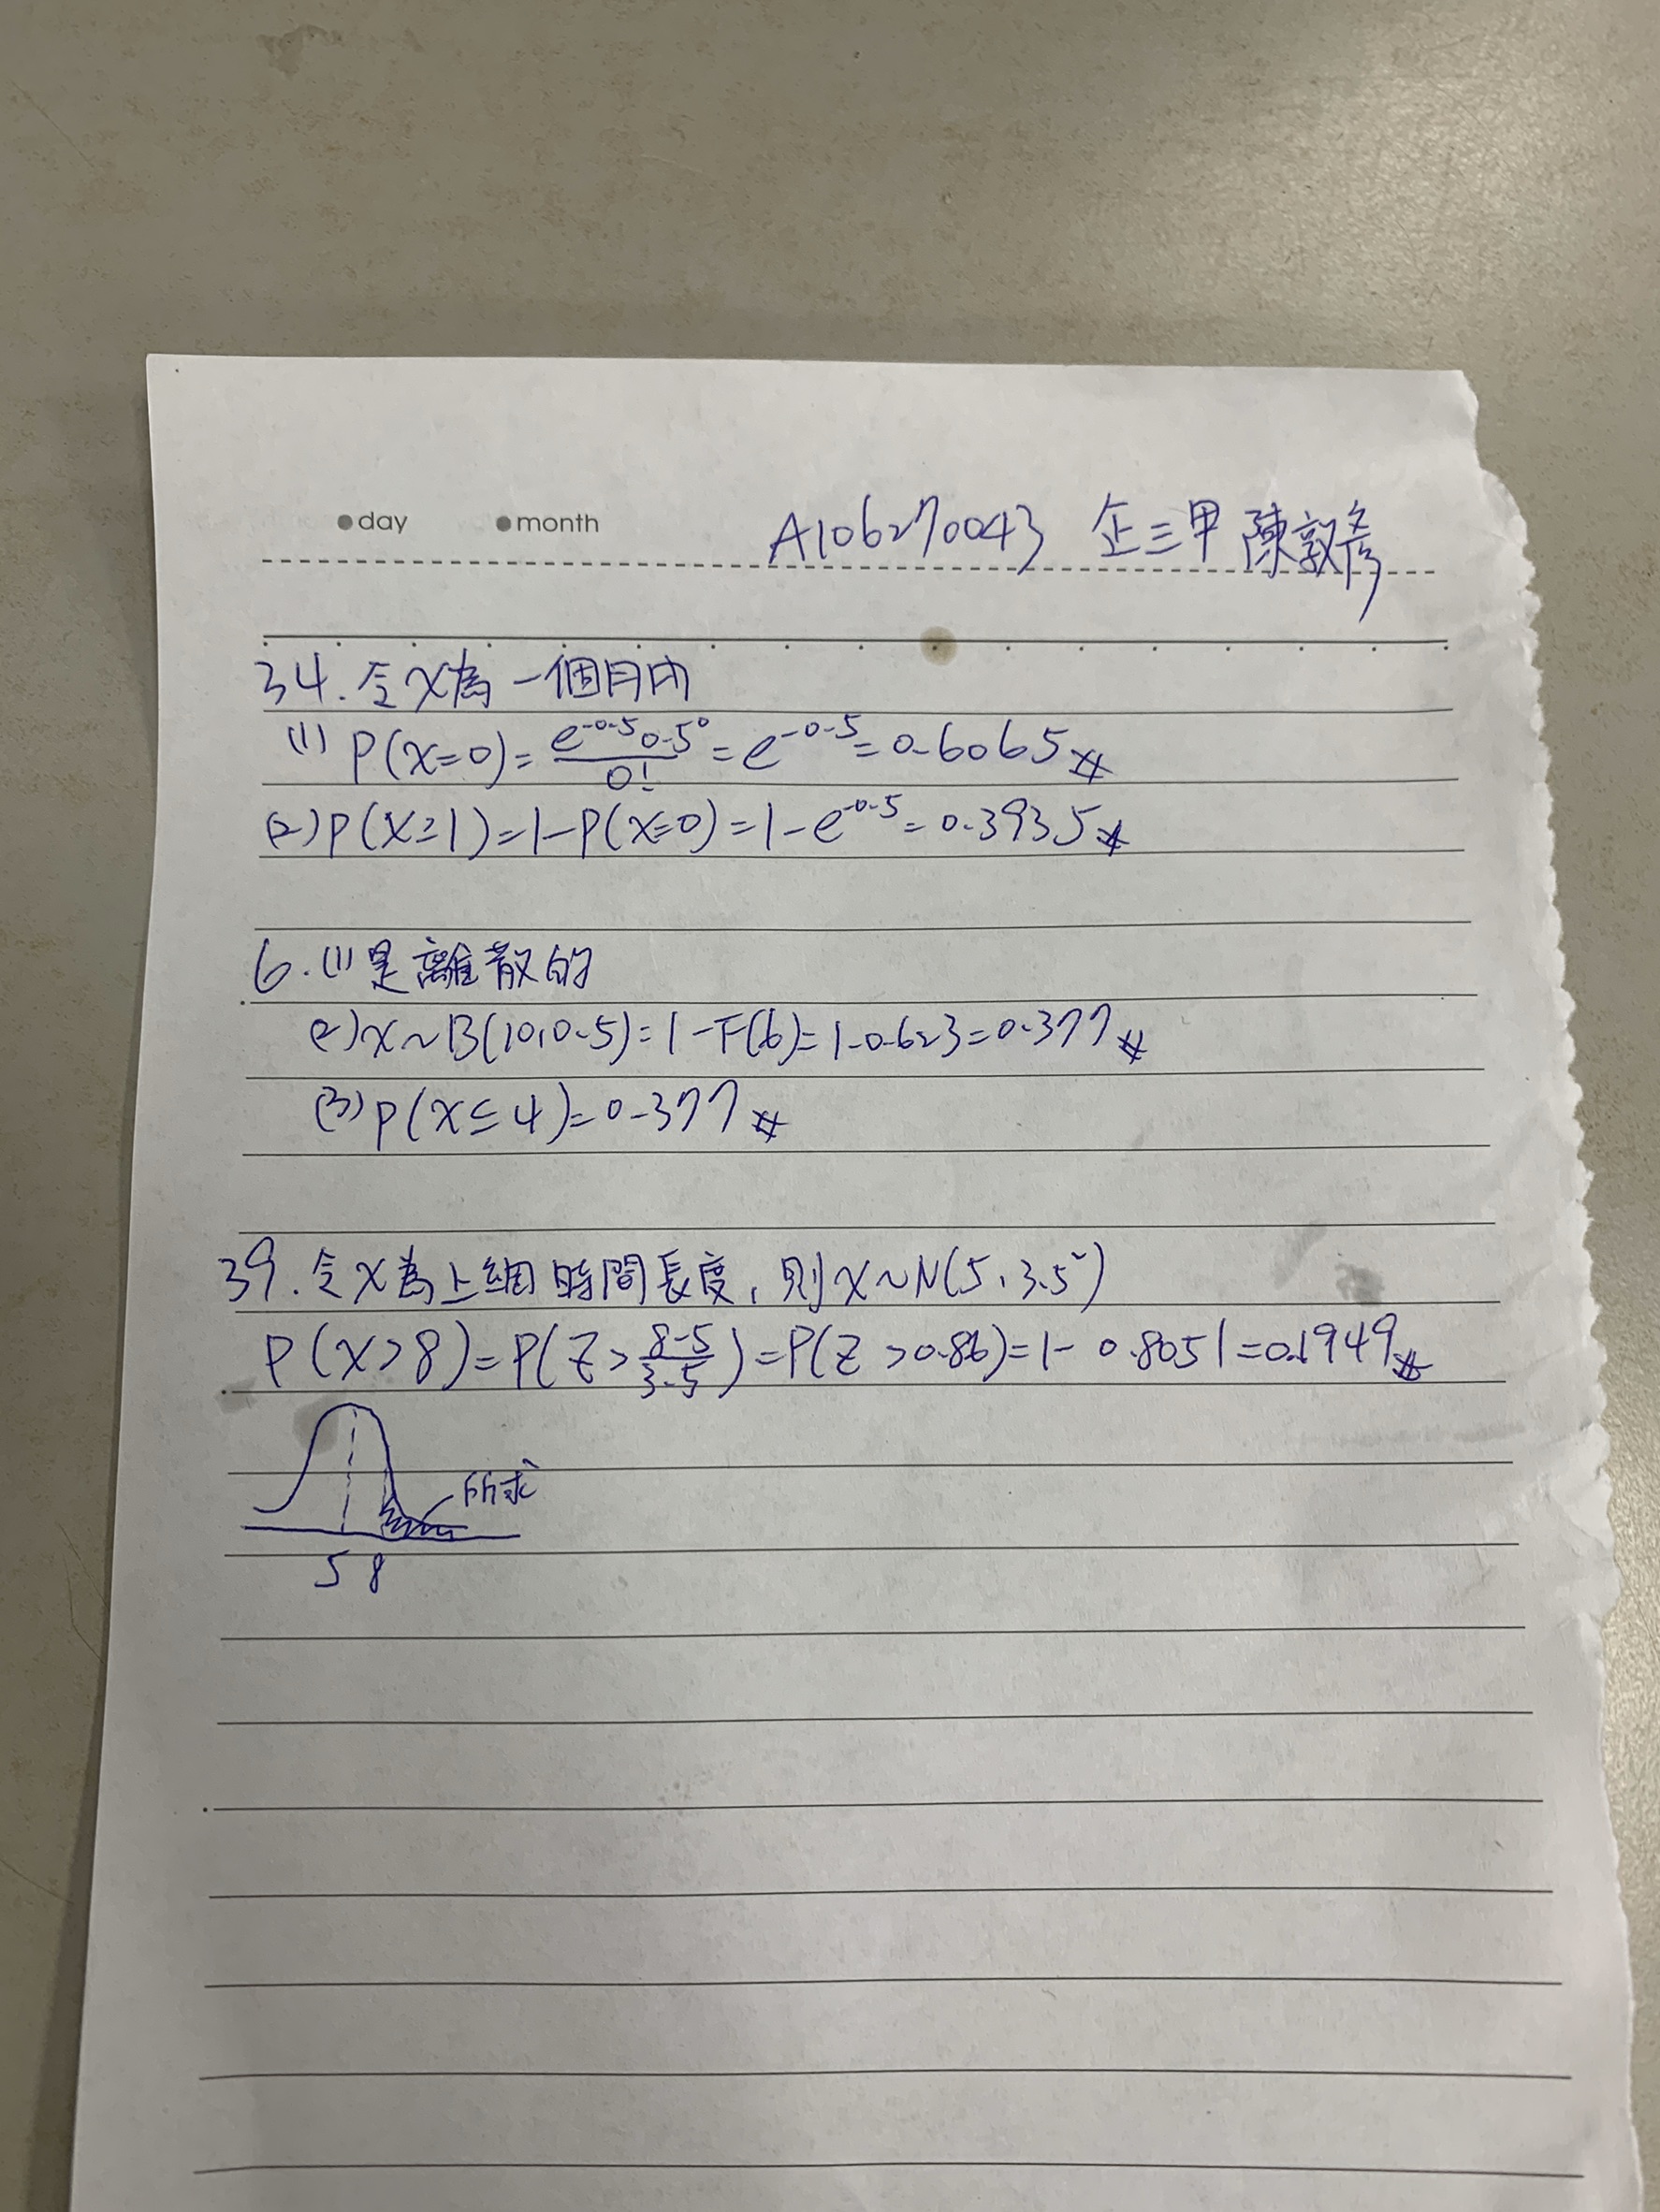 day month A106270043 企三甲 陳敦修
34. 令X為一個月內
(1) P(X=0)=\frac{e^{-0.5}0.5^0}{0!}=e^{-0.5}=0.6065#
(2) P(X≥1)=1-P(X=0)=1-e^{-0.5}=0.3935#
6. (1)是離散的
(2) X~B(10,0.5)=1-F(6)=1-0.623=0.377#
(3) P(X≤4)=0.377#
39. 令X為上網時間長度, 則X~N(5, 3.5²)
P(X>8)=P(Z>\frac{8-5}{3.5})=P(Z>0.86)=1-0.8051=0.1949#
所求
5 8